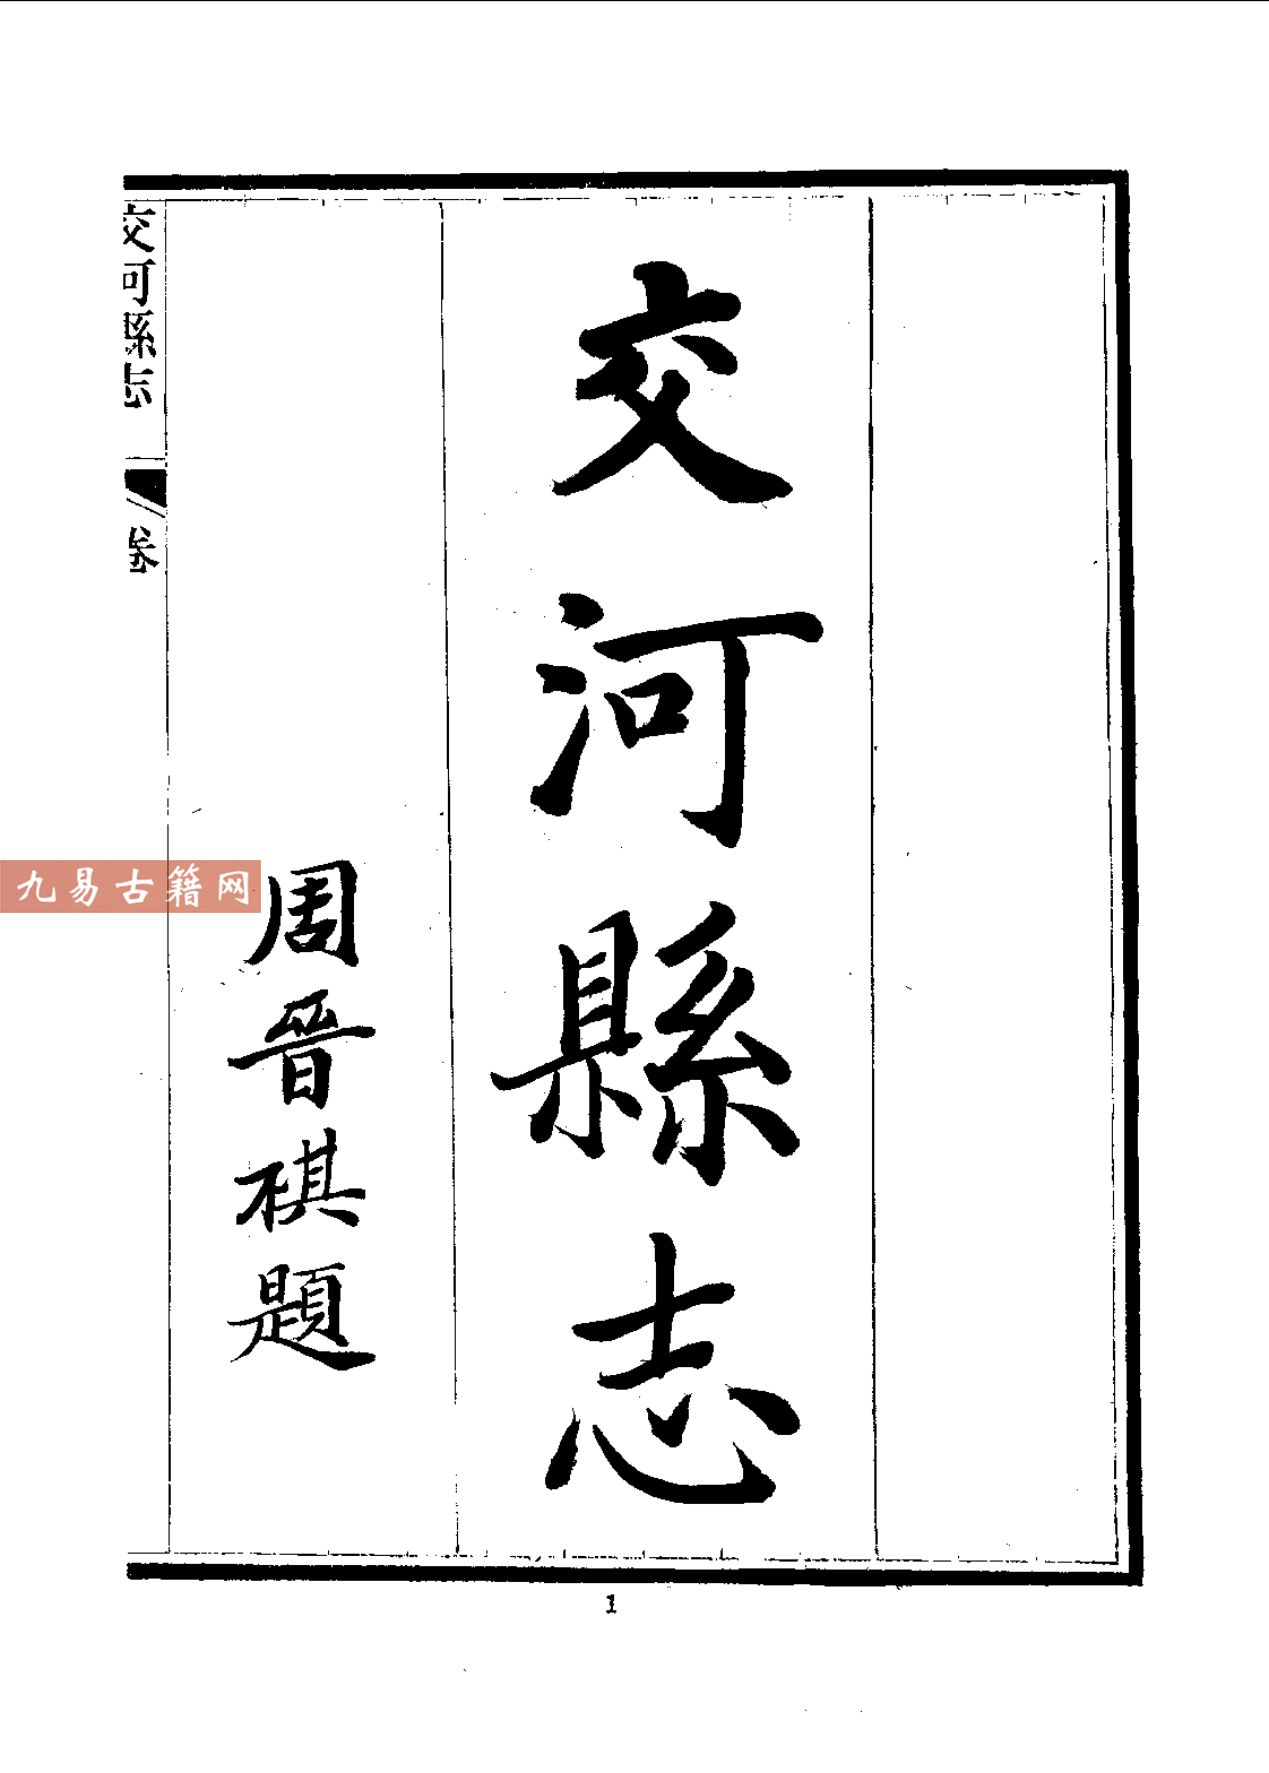 交河縣志
周晉祺題
交河縣志
卷
九易古籍网
1